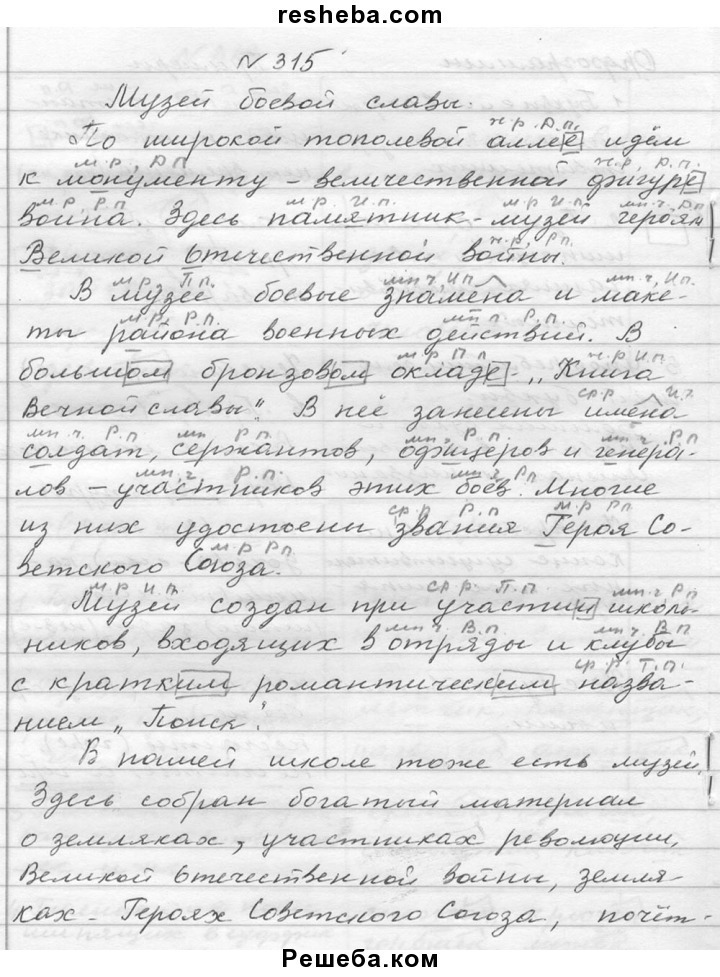 resheba.com
N 315
Музей боевой славы.
ж.р. Д.п.
По широкой тополевой аллее идём
м.р. Д.п. ж.р. Д.п.
к монументу – величественной фигуре
м.р. Р.п. м.р. И.п. м.р. И.п. мн.ч. Д.п.
воина. Здесь памятник-музей героям
ж.р. Р.п.
Великой Отечественной войны.
м.р. П.п. мн.ч. И.п. мн.ч. И.п.
В музее боевые знамена и маке-
м.р. Р.п. мн.ч. Р.п.
ты района военных действий. В
м.р. П.п. ж.р. И.п.
большом бронзовом окладе - „Книга
ср.р. И.п.
Вечной славы". В неё занесены имена
мн.ч. Р.п. мн. Р.п. мн. Р.п. мн.ч. Р.п.
солдат, сержантов, офицеров и генера-
мн.ч. Р.п. мн.ч. Р.п.
лов – участников этих боев. Многие
ср.р. Р.п. м.р. Р.п.
из них удостоены звания Героя Со-
м.р. Р.п.
ветского Союза.
м.р. И.п. ср.р. П.п. мн.ч. Р.п.
Музей создан при участии школь-
мн.ч. В.п. мн.ч. В.п.
ников, входящих в отряды и клубы
ср.р. Т.п.
с кратким романтическим назва-
нием „Поиск".
В нашей школе тоже есть музей.
Здесь собран богатый материал
о земляках, участниках революции,
Великой Отечественной войны, земля-
ках - Героях Советского Союза, почёт-
Решеба.ком